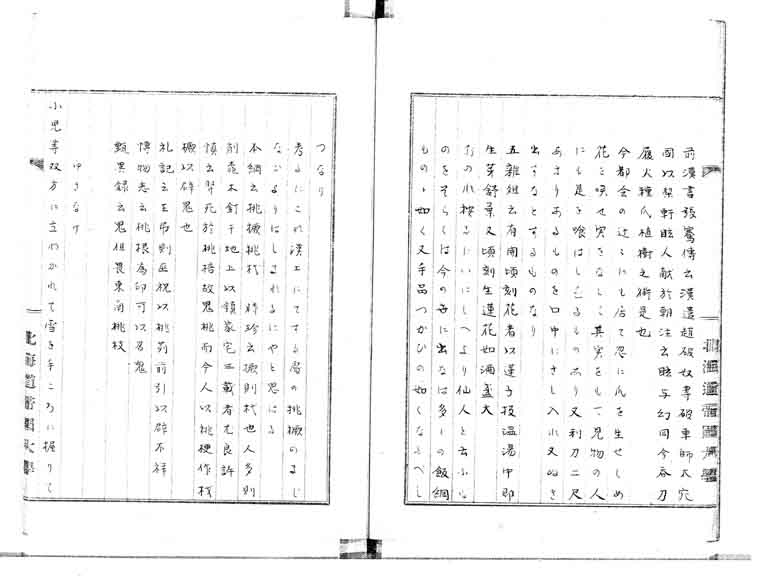 前漢書張騫傳云漢遣趙破奴等破車師大宛
國以犂軒眩人献於朝注云眩与幻同今呑刀
履火種瓜植樹之術是也
今都会の辻々にも居て忽に瓜を生せしめ
花を咲せ実をなしゝ其実をもて見物の人
にも是を喰はしむるものあり又利刀二尺
あまりあるものを口中にさし入れ又ぬき
出すなとするものなり
五雜俎云有開頃刻花者以蓮子投温湯中即
生芽舒葉又頃刻生蓮花如酒盞大
のをそらくは今の世に出なは多くの飯綱
もの如く又手品つかひの如くなるべし
つなり
考るにこれ漢土にてする居の桃橛のまじ
なひよりはしまれるにやと思はる
本綱云桃橛桃杙 時珍云橛則杙也人多
削桃木釘于地上以鎮家宅三載者尤良許
慎云羿死於桃棓故鬼桃而今人以桃梗作杙
橛以辟鬼也
礼記云王吊則巫祝以桃茢前引以辟不祥
博物志云桃根為印可以召鬼
甄異録云鬼但畏東南桃枝
ゆきなけ
小児等双方に立わかれて雪を手ころに握りて